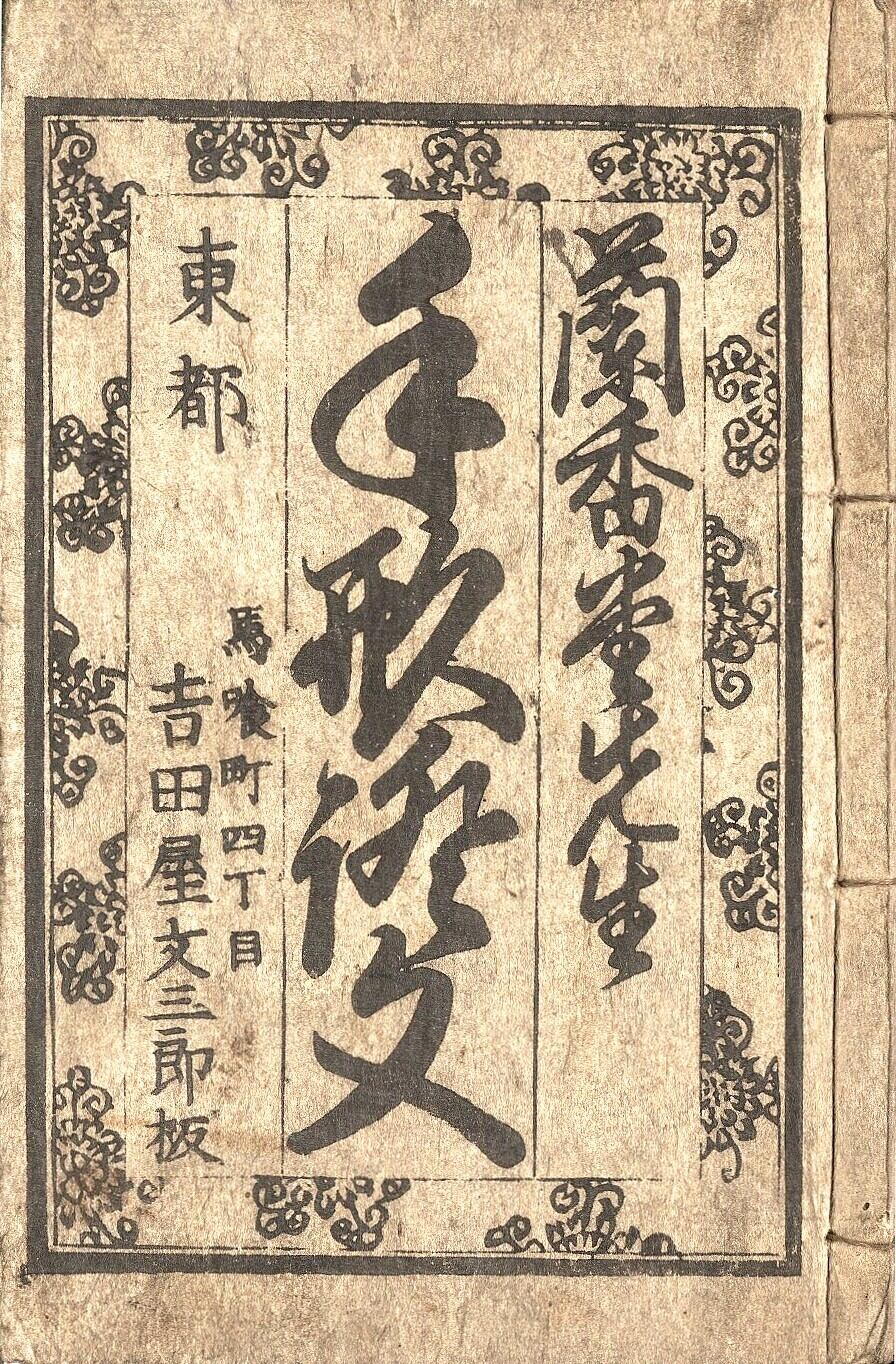 蘭香堂先生
手形證文
東都
馬喰町四丁目
吉田屋文三郎板